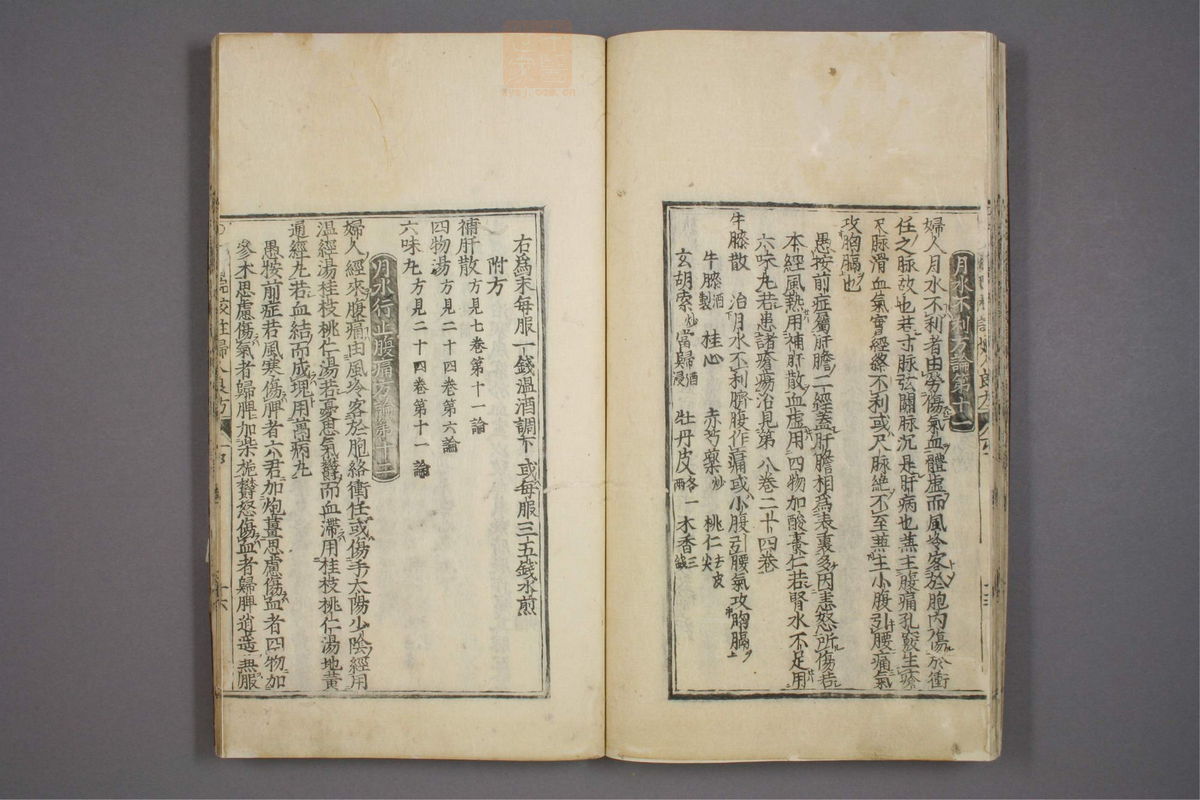 月水不利方論第十一
婦人月水不利者由勞傷氣血體虛而風冷客於胞内傷於衝
任之脉故也若寸脉弦關脉沉是肝病也兼主腹痛孔竅生瘡
尺脉滑血氣實經絡不利或尺脉絶不至兼主小腹引腰痛氣
攻胸膈也
愚按前症屬肝膽二經蓋肝膽相為表裏多因恚怒所傷若
本經風熱用補肝散血虛用四物加酸棗仁若腎水不足用
六味丸若患諸瘡瘍治見第八卷二十四卷
牛膝散 治月水不利臍腹作痛或小腹引腰氣攻胸膈
牛膝酒製 桂心 赤芍藥炒 桃仁去皮尖
玄胡索炒 當歸酒浸 牡丹皮各一兩 木香三錢
右為末每服一錢溫酒調下或每服三五錢水煎
附方
補肝散方見七卷第十一論
四物湯方見二十四卷第六論
六味丸方見二十四卷第十一論
月水行止腹痛方論第十二
婦人經來腹痛由風冷客於胞絡衝任或傷手太陽少陰經用
溫經湯桂枝桃仁湯若憂思氣鬱而血滯用桂枝桃仁湯地黄
通經丸若血結而成塊用萬病丸
愚按前症若風寒傷脾者六君加炮薑思慮傷血者四物加
參朮思慮傷氣者歸脾加柴梔鬱怒傷血者歸脾逍遥兼服